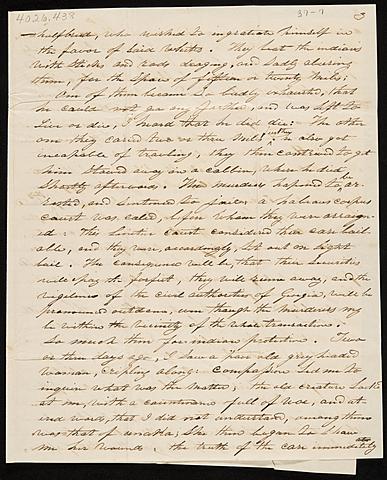 4026.438
37-7
3
halfbreed, who wished to ingratiate himself in
the favor of said whites. They beat the indians
with sticks and rods draging, and sadly abusing
them, for the space of fifteen or twenty miles;
One of them became so badly exhausted, that
he could not go any further, and was left to
live or die, I heard that he did die: The other
one they caried two or three miles further, he also got
incapable of traveling, they then contrived to get
him stowed away in a cabbin, where he died
shortly afterwards. These murderers hapened to be ar-
rested, and sentenced to prison: a habeas corpus
court was called, before whom they were arraign-
ed: The court considered their case bail-
able, and they were, accordingly, let out on light
bail. The consequence will be, that their securities
will pay the forfeit, they will runn away, and the
vigilence of the civil authorities of Georgia, will be
pronounced outdone, even though the murderers may
be within the vicinity of the whole transaction.
So much then for indian protection. Two
or three days ago, I saw a poor old grey headed
woman, cripling along: compassion led me to
inquire what was the matter; the old creature looked
at me, with a countenance full of woe, and ut
ered words, that I did not understand, among them
was that of; she then began to shew
me her wounds, the truth of the case immediately